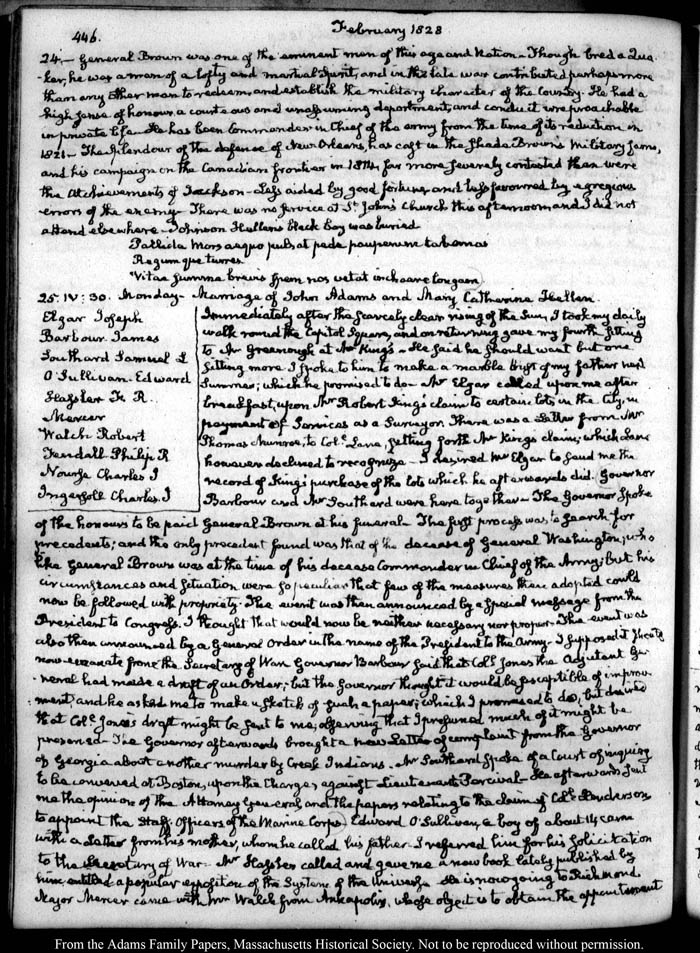 446.
February 1828
24.— General Brown was one of the eminent men of this age and Nation— Though bred a Qua-
-ker, he was a man of a lofty and martial spirit, and in the late war contributed perhaps more
than any other man to redeem and establish the military character of his Country. He had a
high sense of honour, a courteous and unassuming deportment, and conduct irreproachable
in private life. He has been Commander in Chief of the army from the time of its reduction in
1821— The splendour of the defence of New Orleans, has cast in the shade Brown's Military fame,
and his campaign on the Canadian frontier in 1814, far more severely contested than were
the Atchievements of Jackson— Less aided by good fortune, and less favoured by egregious
errors of the enemy— There was no service at St. John's Church this afternoon, and I did not
attend elsewhere. Johnson Hellen's black boy was buried
Pallida Mors aequo pulsat pede pauperum tabernas
Regumque turres.
Vitae summa brevis spem nos vetat inchoare longam
25. IV: 30. Monday— Marriage of John Adams and Mary Catherine Hellen.
Elgar Joseph
Barbour James
Southard Samuel L
O'Sullivan. Edward
Hassler F. R.
Mercer
Walch Robert
Fendall Philip R
Nourse Charles J
Ingersoll Charles. J
Immediately after the scarcely clear rising of the Sun, I took my daily
walk round the Capitol Square, and on returning gave my fourth sitting
to Mr Greenough at Mr King's— He said he should want but one
sitting more I spoke to him to make a marble bust of my father next
Summer; which he promised to do— Mr Elgar called upon me after
breakfast, upon Mr Robert King's claim to certain lots in the City, in
payment of Services as a Surveyor. There was a Letter from Mr
Thomas Munroe, to Coll. Lane, setting forth Mr King's claim, which Lane
however declined to recognize— I desired Mr Elgar to send me the
record of King's purchase of the lots which he afterwards did. Governor
Barbour and Mr Southard were here together— The Governor spoke
of the honours to be paid General Brown at his funeral— The first process was, to search for
precedents; and the only precedent found was that of the decease of General Washington; who
like General Brown was at the time of his decease Commander in Chief of the Army; but his
circumstances and situation were so peculiar that few of the measures then adopted could
now be followed with propriety. The event was then announced by a special message from the
President to Congress. I thought that would now be neither necessary nor proper. The event was
also then announced by a General Order in the name of the President to the Army— I supposed it should
now emanate from the Secretary of War. Governor Barbour said that Coll. Jones the Adjutant Ge-
-neral had made a draft of an Order; but the Governor thought it would be susceptible of improve-
ment, and he asked me to make a sketch of such a paper; which I promised to do, but desired
that Coll. Jones's draft might be sent to me; observing that I presumed much of it might be
preserved— The Governor afterwards brought a new Letter of complaint from the Governor
of Georgia about another murder by Creek Indians. Mr Southard spoke of a Court of inquiry
to be convened at Boston, upon the Charges against Lieutenant Percival— He afterwards sent
me the opinion of the Attorney General, and the papers relating to the claim of Coll. Henderson
to appoint the Staff Officers of the Marine Corps. Edward O'Sullivan, a boy of about 14 came
with a Letter from his mother, whom he called his father. I referred him for his solicitation
to the Secretary of War. Mr Hassler called and gave me a new book lately published by
him, entitled a popular exposition of the System of the Universe. He is now going to Richmond.
Major Mercer came with Mr Walch from Annapolis, whose object is to obtain the appointment
From the Adams Family Papers, Massachusetts Historical Society. Not to be reproduced without permission.